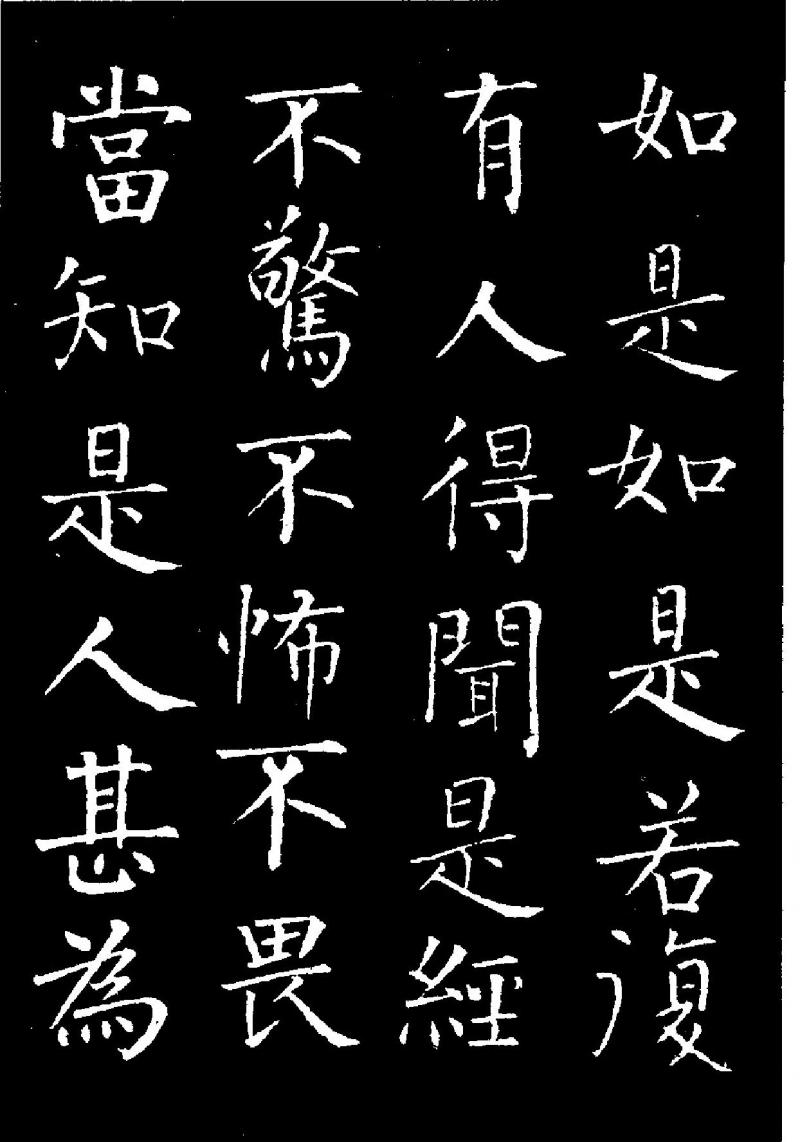 如是如是若復
有人得聞是經
不驚不怖不畏
當知是人甚為